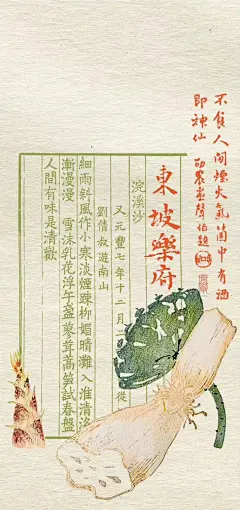 不食人間煙火氣箇中有酒
即神仙 聲伯題
東坡樂府
浣溪沙
又元豐七年十二月二 從
劉倩叔遊南山
細雨斜風作小寒淡煙疎柳媚晴灘入淮清洛
漸漫漫 雪沫乳花浮午盞蓼茸蒿筍試春盤
人間有味是清歡